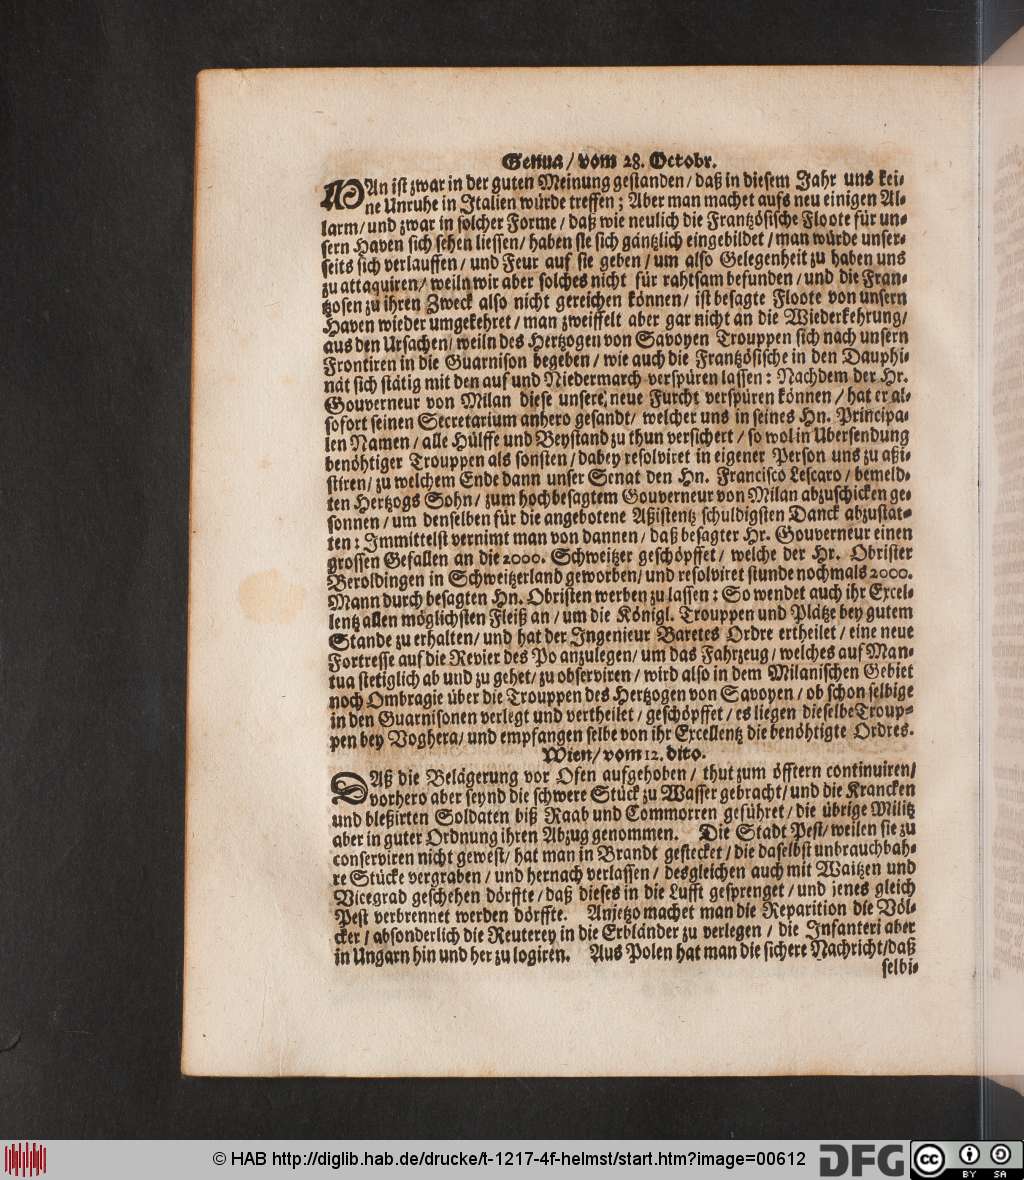 Genua / vom 28. Octobr.
MAn ist zwar in der guten Meinung gestanden / daß in diesem Jahr uns kei-
ne Unruhe in Italien würde treffen ; Aber man machet aufs neu einigen Al-
larm / und zwar in solcher Forme / daß wie neulich die Frantzösische Floote für un-
sern Haven sich sehen liessen / haben sie sich gäntzlich eingebildet / man würde unser-
seits sich verlauffen / und Feur auf sie geben / um also Gelegenheit zu haben uns
zu attaquiren / weiln wir aber solches nicht für rahtsam befunden / und die Fran-
tzosen zu ihren Zweck also nicht gereichen können / ist besagte Floote von unsern
Haven wieder umgekehret / man zweiffelt aber gar nicht an die Wiederkehrung /
aus den Ursachen / weiln des Hertzogen von Savoyen Trouppen sich nach unsern
Frontiren in die Guarnison begeben / wie auch die Frantzösische in den Dauphi-
nät sich stätig mit den auf und Niedermarch verspüren lassen : Nachdem der Hr.
Gouverneur von Milan diese unsere neue Furcht verspüren können / hat er al-
sofort seinen Secretarium anhero gesandt / welcher uns in seines Hn. Principa-
len Namen / alle Hülffe und Beystand zu thun versichert / so wol in Ubersendung
benöhtiger Trouppen als sonsten / dabey resolviret in eigener Person uns zu aßi-
stiren / zu welchem Ende dann unser Senat den Hn. Francisco Lescaro / bemeld-
ten Hertzogs Sohn / zum hochbesagtem Gouverneur von Milan abzuschicken ge-
sonnen / um denselben für die angebotene Aßistentz schuldigsten Danck abzustat-
ten : Immittelst vernimt man von dannen / daß besagter Hr. Gouverneur einen
grossen Gefallen an die 2000. Schweitzer geschöpffet / welche der Hr. Obrister
Beroldingen in Schweitzerland geworben / und resolviret stunde nochmals 2000.
Mann durch besagten Hn. Obristen werben zu lassen : So wendet auch ihr Excel-
lentz allen möglichsten Fleiß an / um die Königl. Trouppen und Plätze bey gutem
Stande zu erhalten / und hat der Ingenieur Baretes Ordre ertheilet / eine neue
Fortresse auf die Revier des Po anzulegen / um das Fahrzeug / welches auf Man-
tua stetiglich ab und zu gehet / zu observiren / wird also in dem Milanischen Gebiet
noch Ombragie über die Trouppen des Hertzogen von Savoyen / ob schon selbige
in den Guarnisonen verlegt und vertheilet / geschöpffet / es liegen dieselbe Troup-
pen bey Voghera / und empfangen selbe von ihr Excellentz die benöhtigte Ordres.
Wien / vom 12. dito.
DAß die Belägerung vor Ofen aufgehoben / thut zum öfftern continuiren /
vorhero aber seynd die schwere Stück zu Wasser gebracht / und die Krancken
und bleßirten Soldaten biß Raab und Commorren geführet / die übrige Militz
aber in guter Ordnung ihren Abzug genommen. Die Stadt Pest / weilen sie zu
conserviren nicht gewest / hat man in Brandt gestecket / die daselbst unbrauchbah-
re Stücke vergraben / und hernach verlassen / desgleichen auch mit Waitzen und
Vicegrad geschehen dörffte / daß dieses in die Lufft gesprenget / und jenes gleich
Pest verbrennet werden dörffte. Anjetzo machet man die Reparition die Völ-
cker / absonderlich die Reuterey in die Erbländer zu verlegen / die Infanteri aber
in Ungarn hin und her zu logiren. Aus Polen hat man die sichere Nachricht / daß
selbi-
© HAB http://diglib.hab.de/drucke/t-1217-4f-helmst/start.htm?image=00612
DFG
cc BY SA